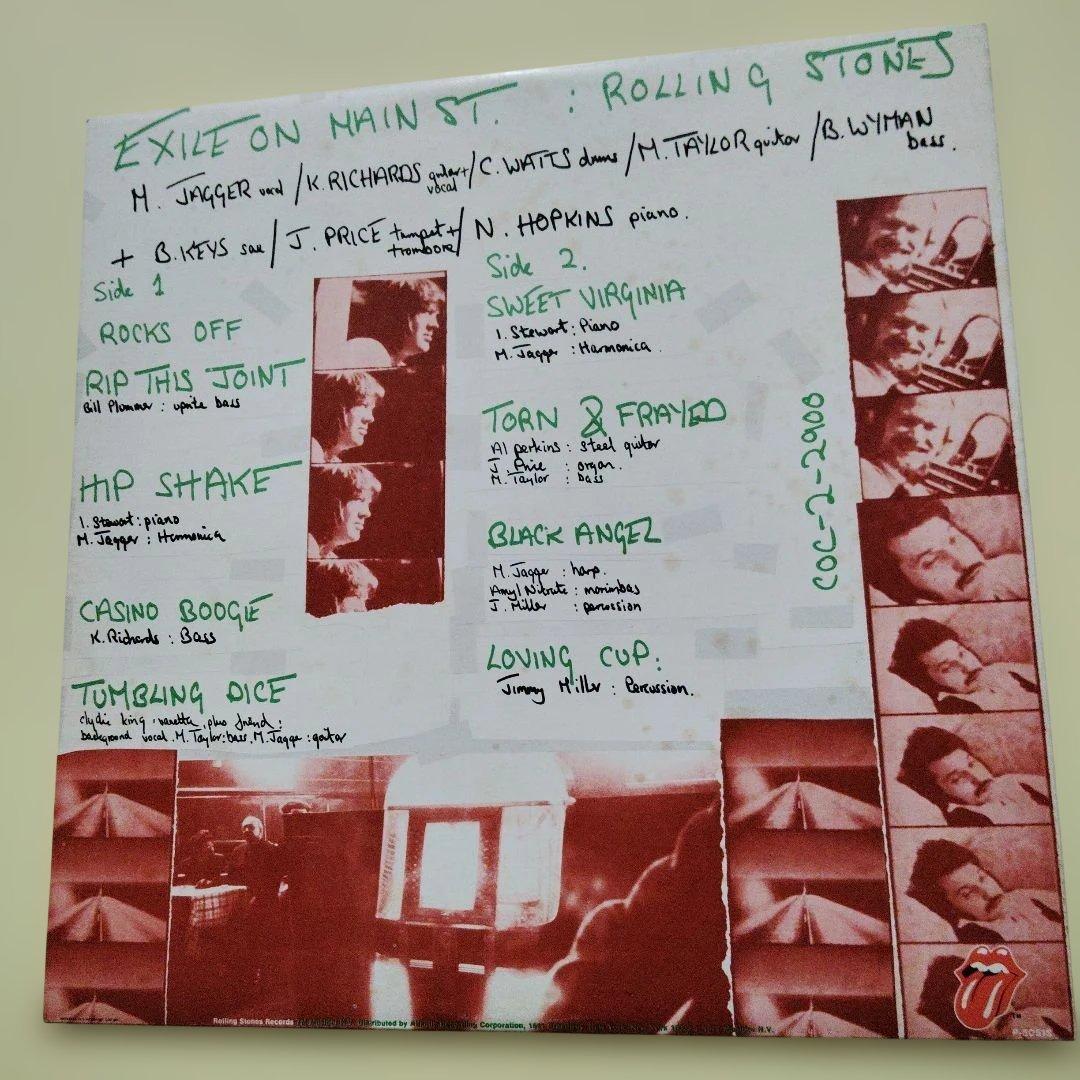 EXILE ON MAIN ST. : ROLLING STONES
M. JAGGER vocal / K. RICHARDS guitar + vocal / C. WATTS drums / M. TAYLOR guitar / B. WYMAN bass.
+ B. KEYS sax / J. PRICE trumpet + trombone / N. HOPKINS piano.
Side 1
ROCKS OFF
RIP THIS JOINT
Bill Plummer : uprite bass
HIP SHAKE
I. Stewart : piano
M. Jagger : Harmonica
CASINO BOOGIE
K. Richards : Bass
TUMBLING DICE
clydie king, vanetta, plus friend :
background vocal. M. Taylor : bass. M. Jagger : guitar
Side 2.
SWEET VIRGINIA
I. Stewart : Piano
M. Jagger : Harmonica.
TORN & FRAYED
Al perkins : steel guitar
J. Price : organ.
M. Taylor : bass
BLACK ANGEL
M. Jagger : harp.
Amyl Nitrate : marimbas
J. Miller : percussion
LOVING CUP :
Jimmy Miller : Percussion.
COC-2-2900
Rolling Stones Records
Distributed by
Corporation,
N.V.
TM